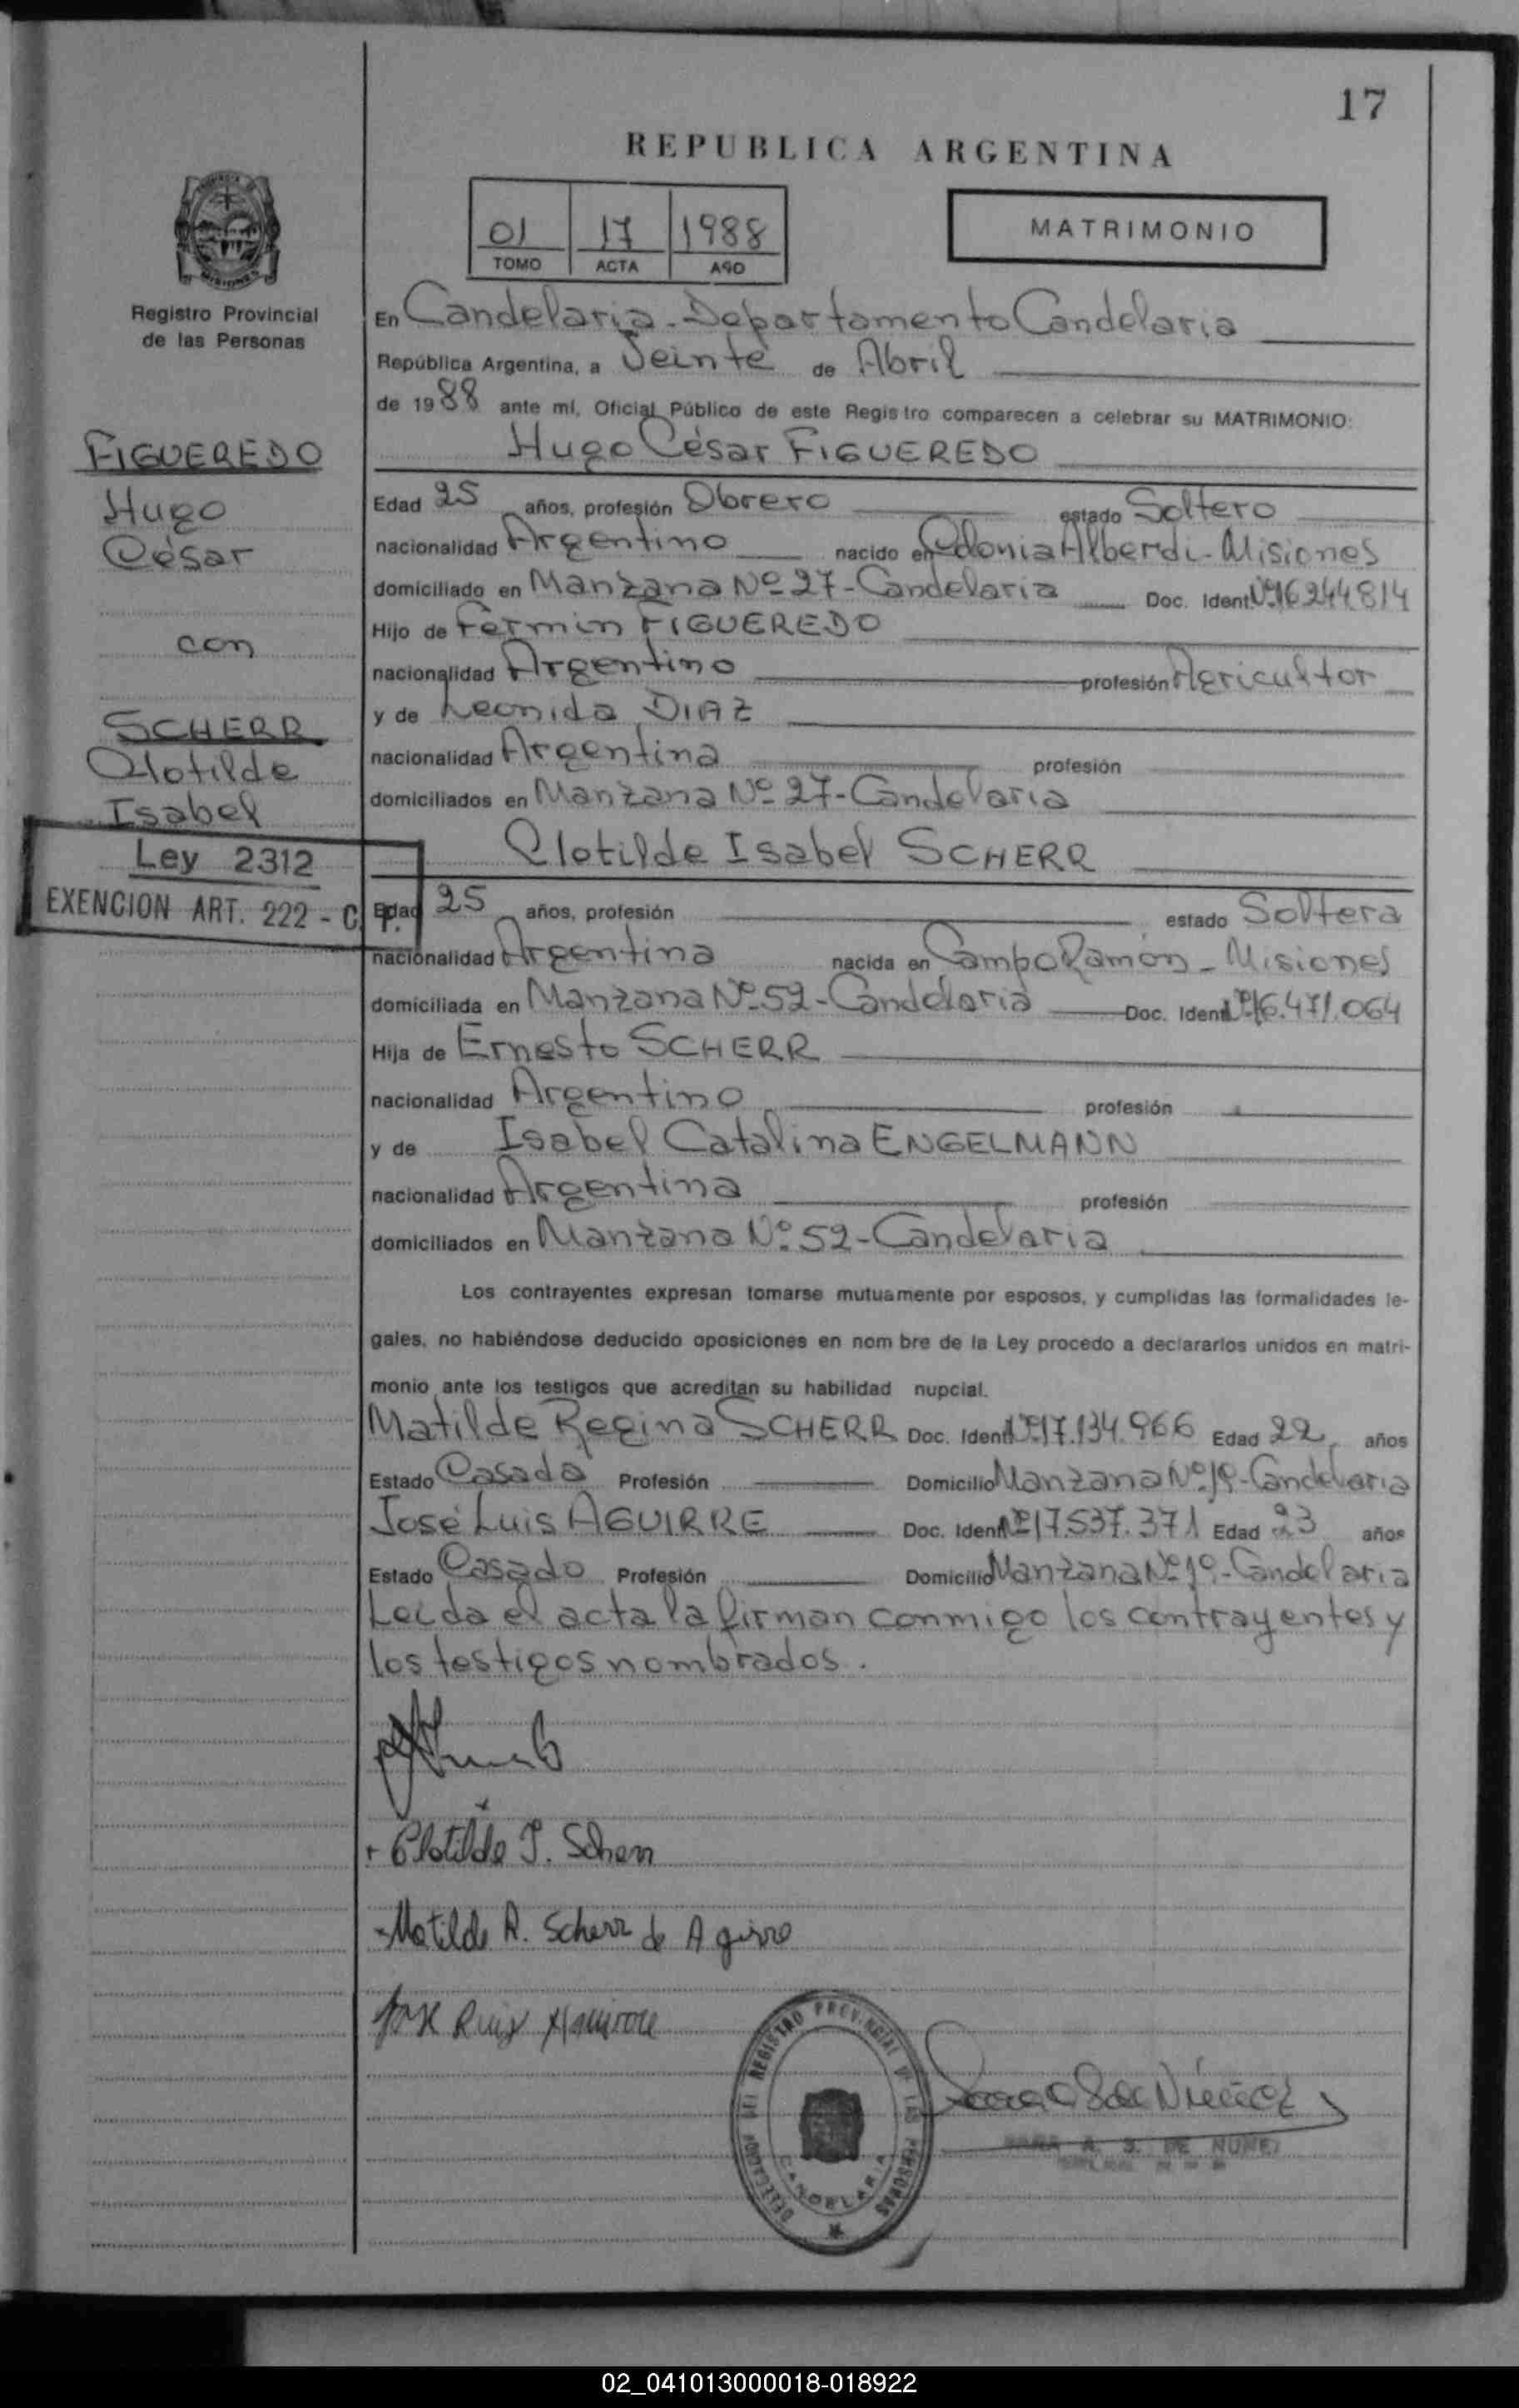 17
REPUBLICA ARGENTINA
01 17 1988
TOMO ACTA AÑO
MATRIMONIO
Registro Provincial
de las Personas
En Candelaria - Departamento Candelaria
República Argentina, a Veinte de Abril
de 1988 ante mí, Oficial Público de este Registro comparecen a celebrar su MATRIMONIO:
Hugo César FIGUEREDO
FIGUEREDO
Hugo
César
con
SCHERR
Clotilde
Isabel
Ley 2312
EXENCION ART. 222 - C. F.
Edad 25 años, profesión Obrero estado Soltero
nacionalidad Argentino nacido en Colonia Alberdi - Misiones
domiciliado en Manzana Nº 27 - Candelaria Doc. Ident. Nº 16.244.814
Hijo de Fermin FIGUEREDO
nacionalidad Argentino profesión Agricultor
y de Leonida DIAZ
nacionalidad Argentina profesión
domiciliados en Manzana Nº 27 - Candelaria
Clotilde Isabel SCHERR
Edad 25 años, profesión estado Soltera
nacionalidad Argentina nacida en Campo Ramón - Misiones
domiciliada en Manzana Nº 52 - Candelaria Doc. Ident. Nº 16.471.064
Hija de Ernesto SCHERR
nacionalidad Argentino profesión
y de Isabel Catalina ENGELMANN
nacionalidad Argentina profesión
domiciliados en Manzana Nº 52 - Candelaria
Los contrayentes expresan tomarse mutuamente por esposos, y cumplidas las formalidades le-
gales, no habiéndose deducido oposiciones en nom bre de la Ley procedo a declararlos unidos en matri-
monio ante los testigos que acreditan su habilidad nupcial.
Matilde Regina SCHERR Doc. Ident. Nº 17.134.966 Edad 22 años
Estado Casada Profesión Domicilio Manzana Nº 19 - Candelaria
José Luis AGUIRRE Doc. Ident. Nº 17.537.371 Edad 23 años
Estado Casado Profesión Domicilio Manzana Nº 19 - Candelaria
Leida el acta la firman conmigo los contrayentes y
los testigos nombrados.
Clotilde I. Scherr
Matilde R. Scherr de Agirre
DELEGACION DEL REGISTRO PROVINCIAL DE LAS PERSONAS
CANDELARIA
A. S. DE NUÑEZ
02_041013000018-018922